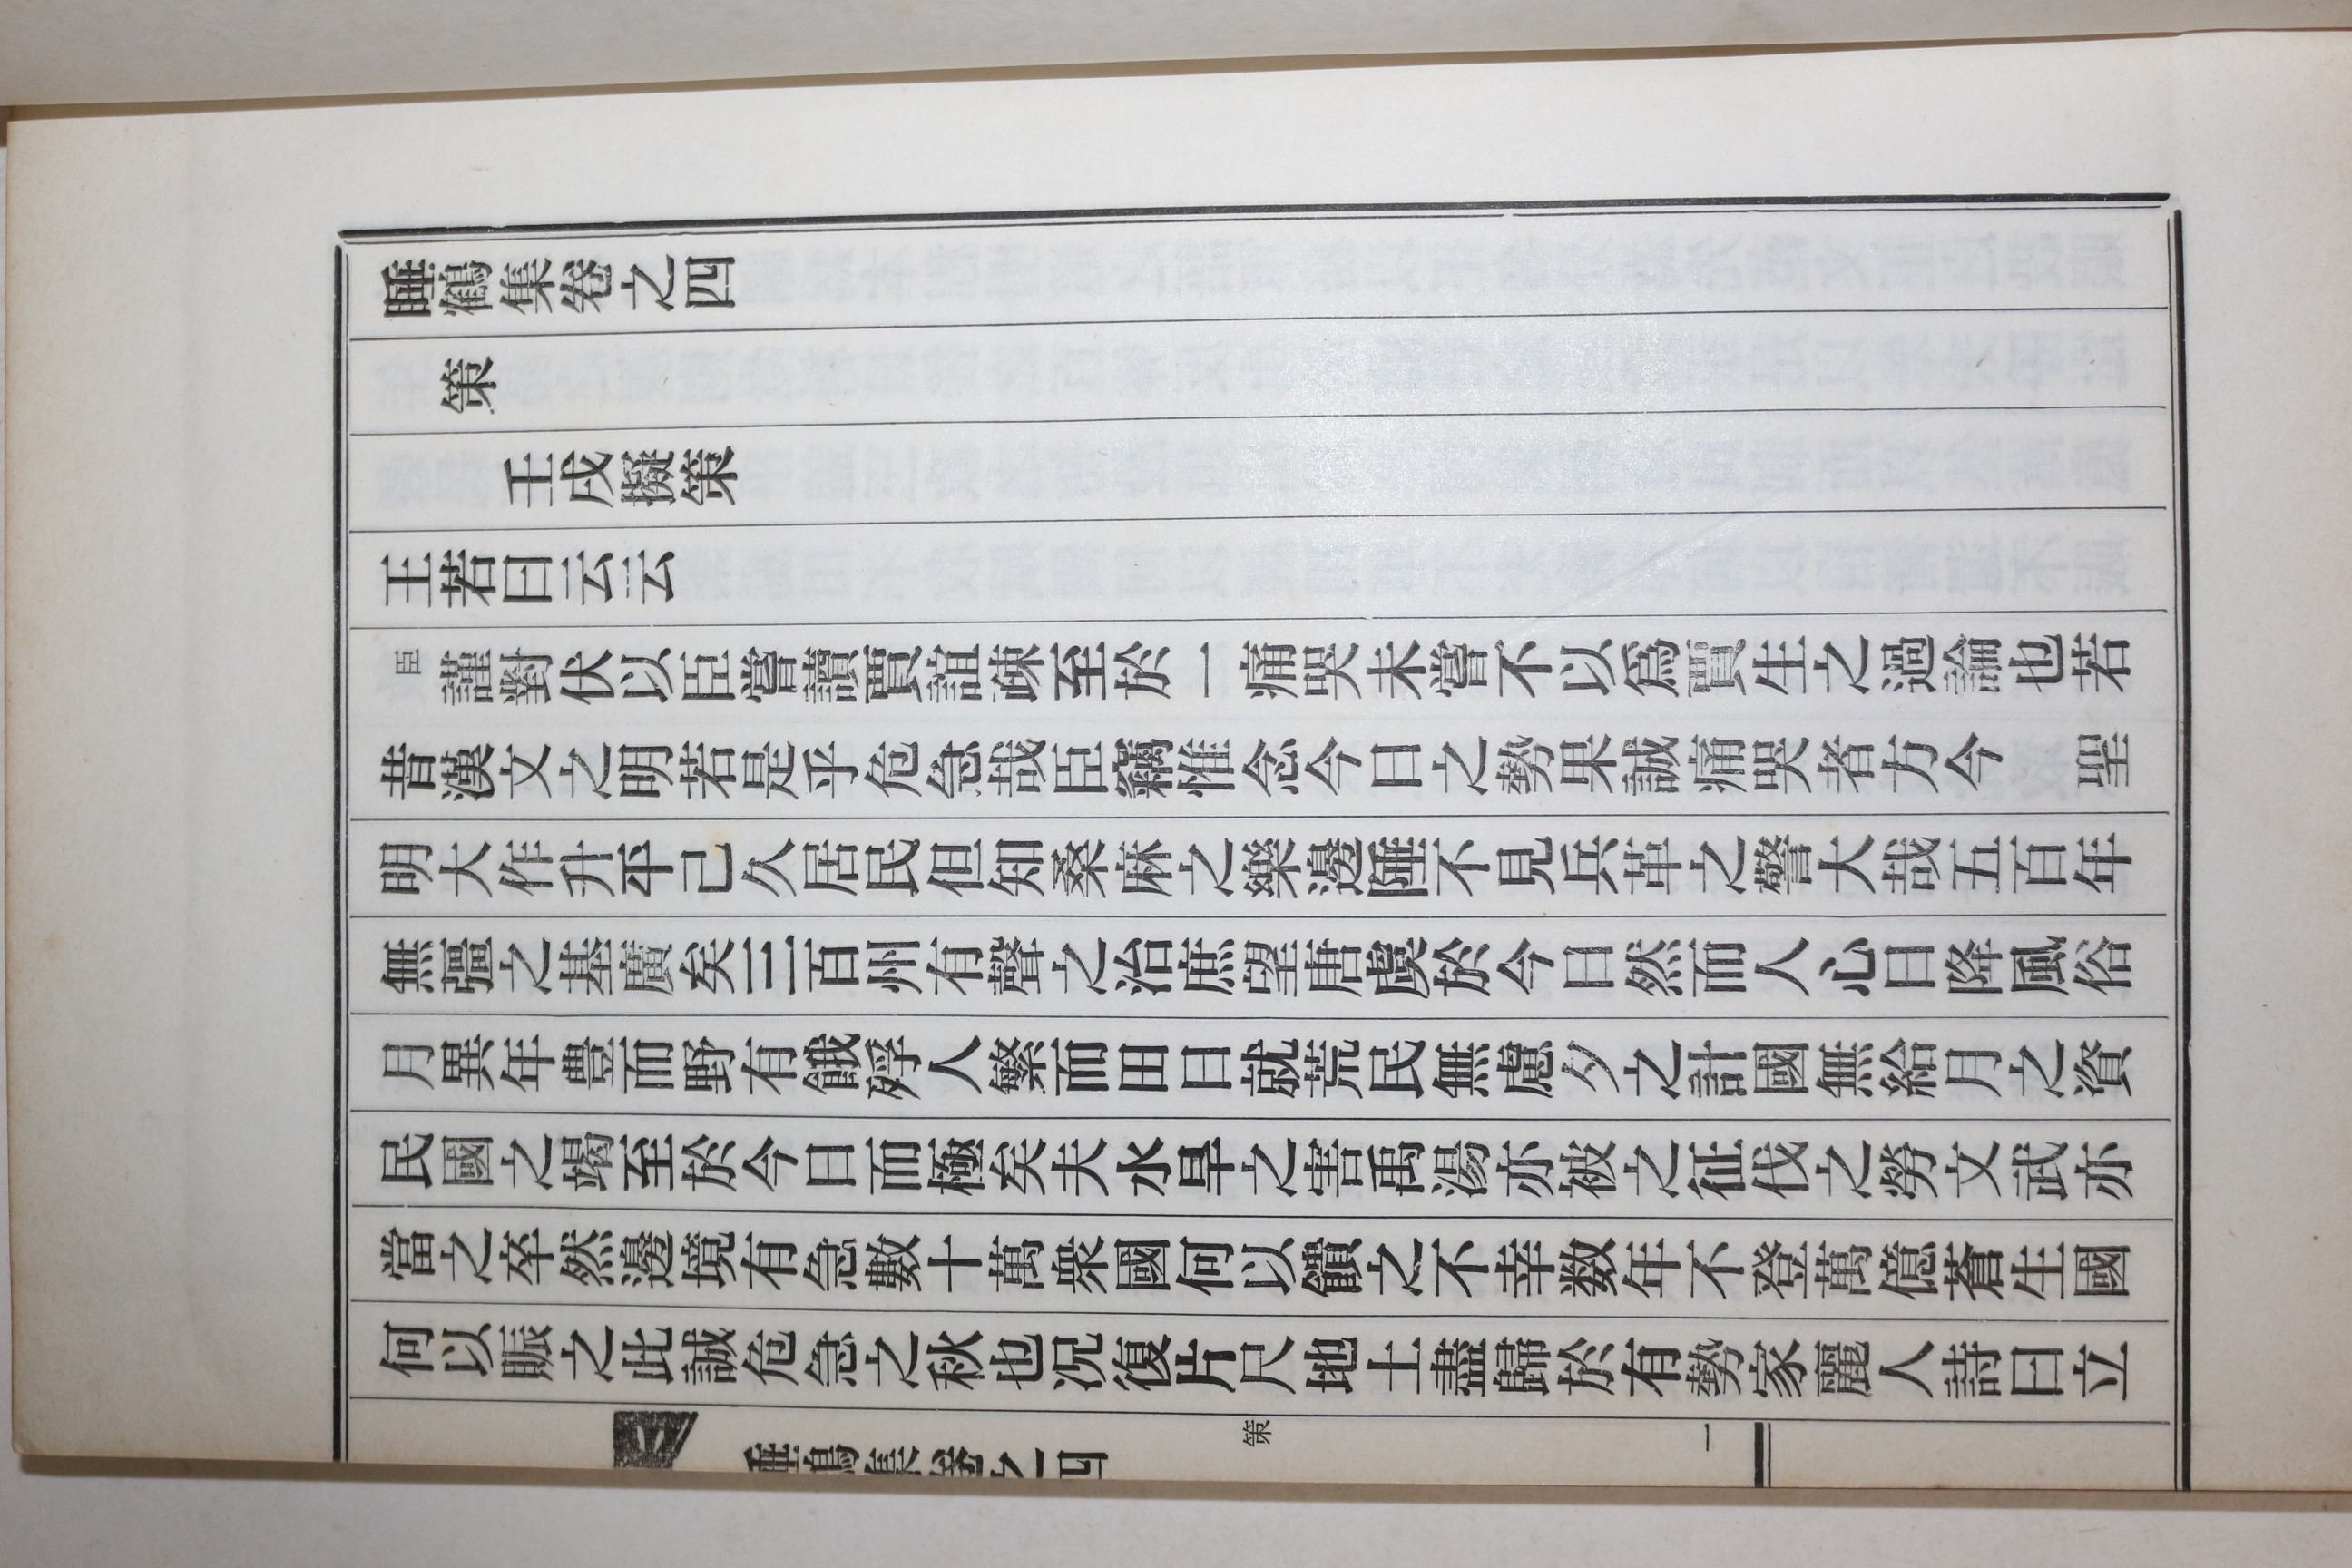 睡鶴集卷之四
策
壬戌擬策
王若曰云云
臣謹對伏以臣嘗讀賈誼疎至於一痛哭未嘗不以爲賈生之過論也若
昔漢文之明若是乎危急哉臣竊惟念今日之勢果誠痛哭者方今 聖
明大作升平己久居民但知桑麻之樂邊陲不見兵革之警大哉五百年
無彊之基廣矣三百州有聲之治庶望唐虞於今日然而人心日降風俗
月異年豊而野有餓殍人繁而田日就荒民無慮夕之計國無給月之資
民國之竭至於今日而極矣夫水旱之害禹湯亦被之征伐之勞文武亦
當之卒然邊境有急數十萬衆國何以饋之不幸数年不登萬億蒼生國
何以賑之此誠危急之秋也況復片尺地土盡歸於有勢家麗人詩曰立
睡鶴集卷之四 策 一